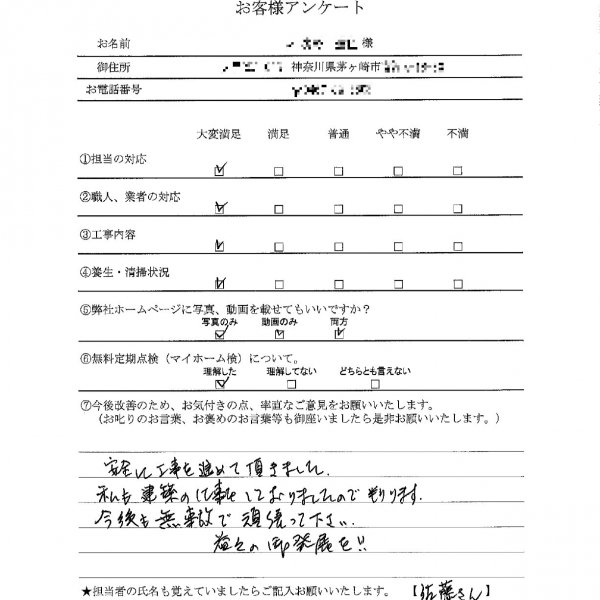 お客様アンケート
お名前 様
御住所 神奈川県茅ヶ崎市
お電話番号
大変満足 満足 普通 やや不満 不満
①担当の対応
②職人、業者の対応
③工事内容
④養生・清掃状況
⑤弊社ホームページに写真、動画を載せてもいいですか？
写真のみ 動画のみ 両方
⑥無料定期点検（マイホーム検）について。
理解した 理解してない どちらとも言えない
⑦今後改善のため、お気付きの点、率直なご意見をお願いいたします。
（お叱りのお言葉、お褒めのお言葉等も御座いましたら是非お願いいたします。）
安全に工事を進めて頂きました.
私も建築の仕事をしておりましたので わかります.
今後も無事故で頑張って下さい.
益々の御発展を!!
★担当者の氏名も覚えていましたらご記入お願いいたします。【佐藤さん】